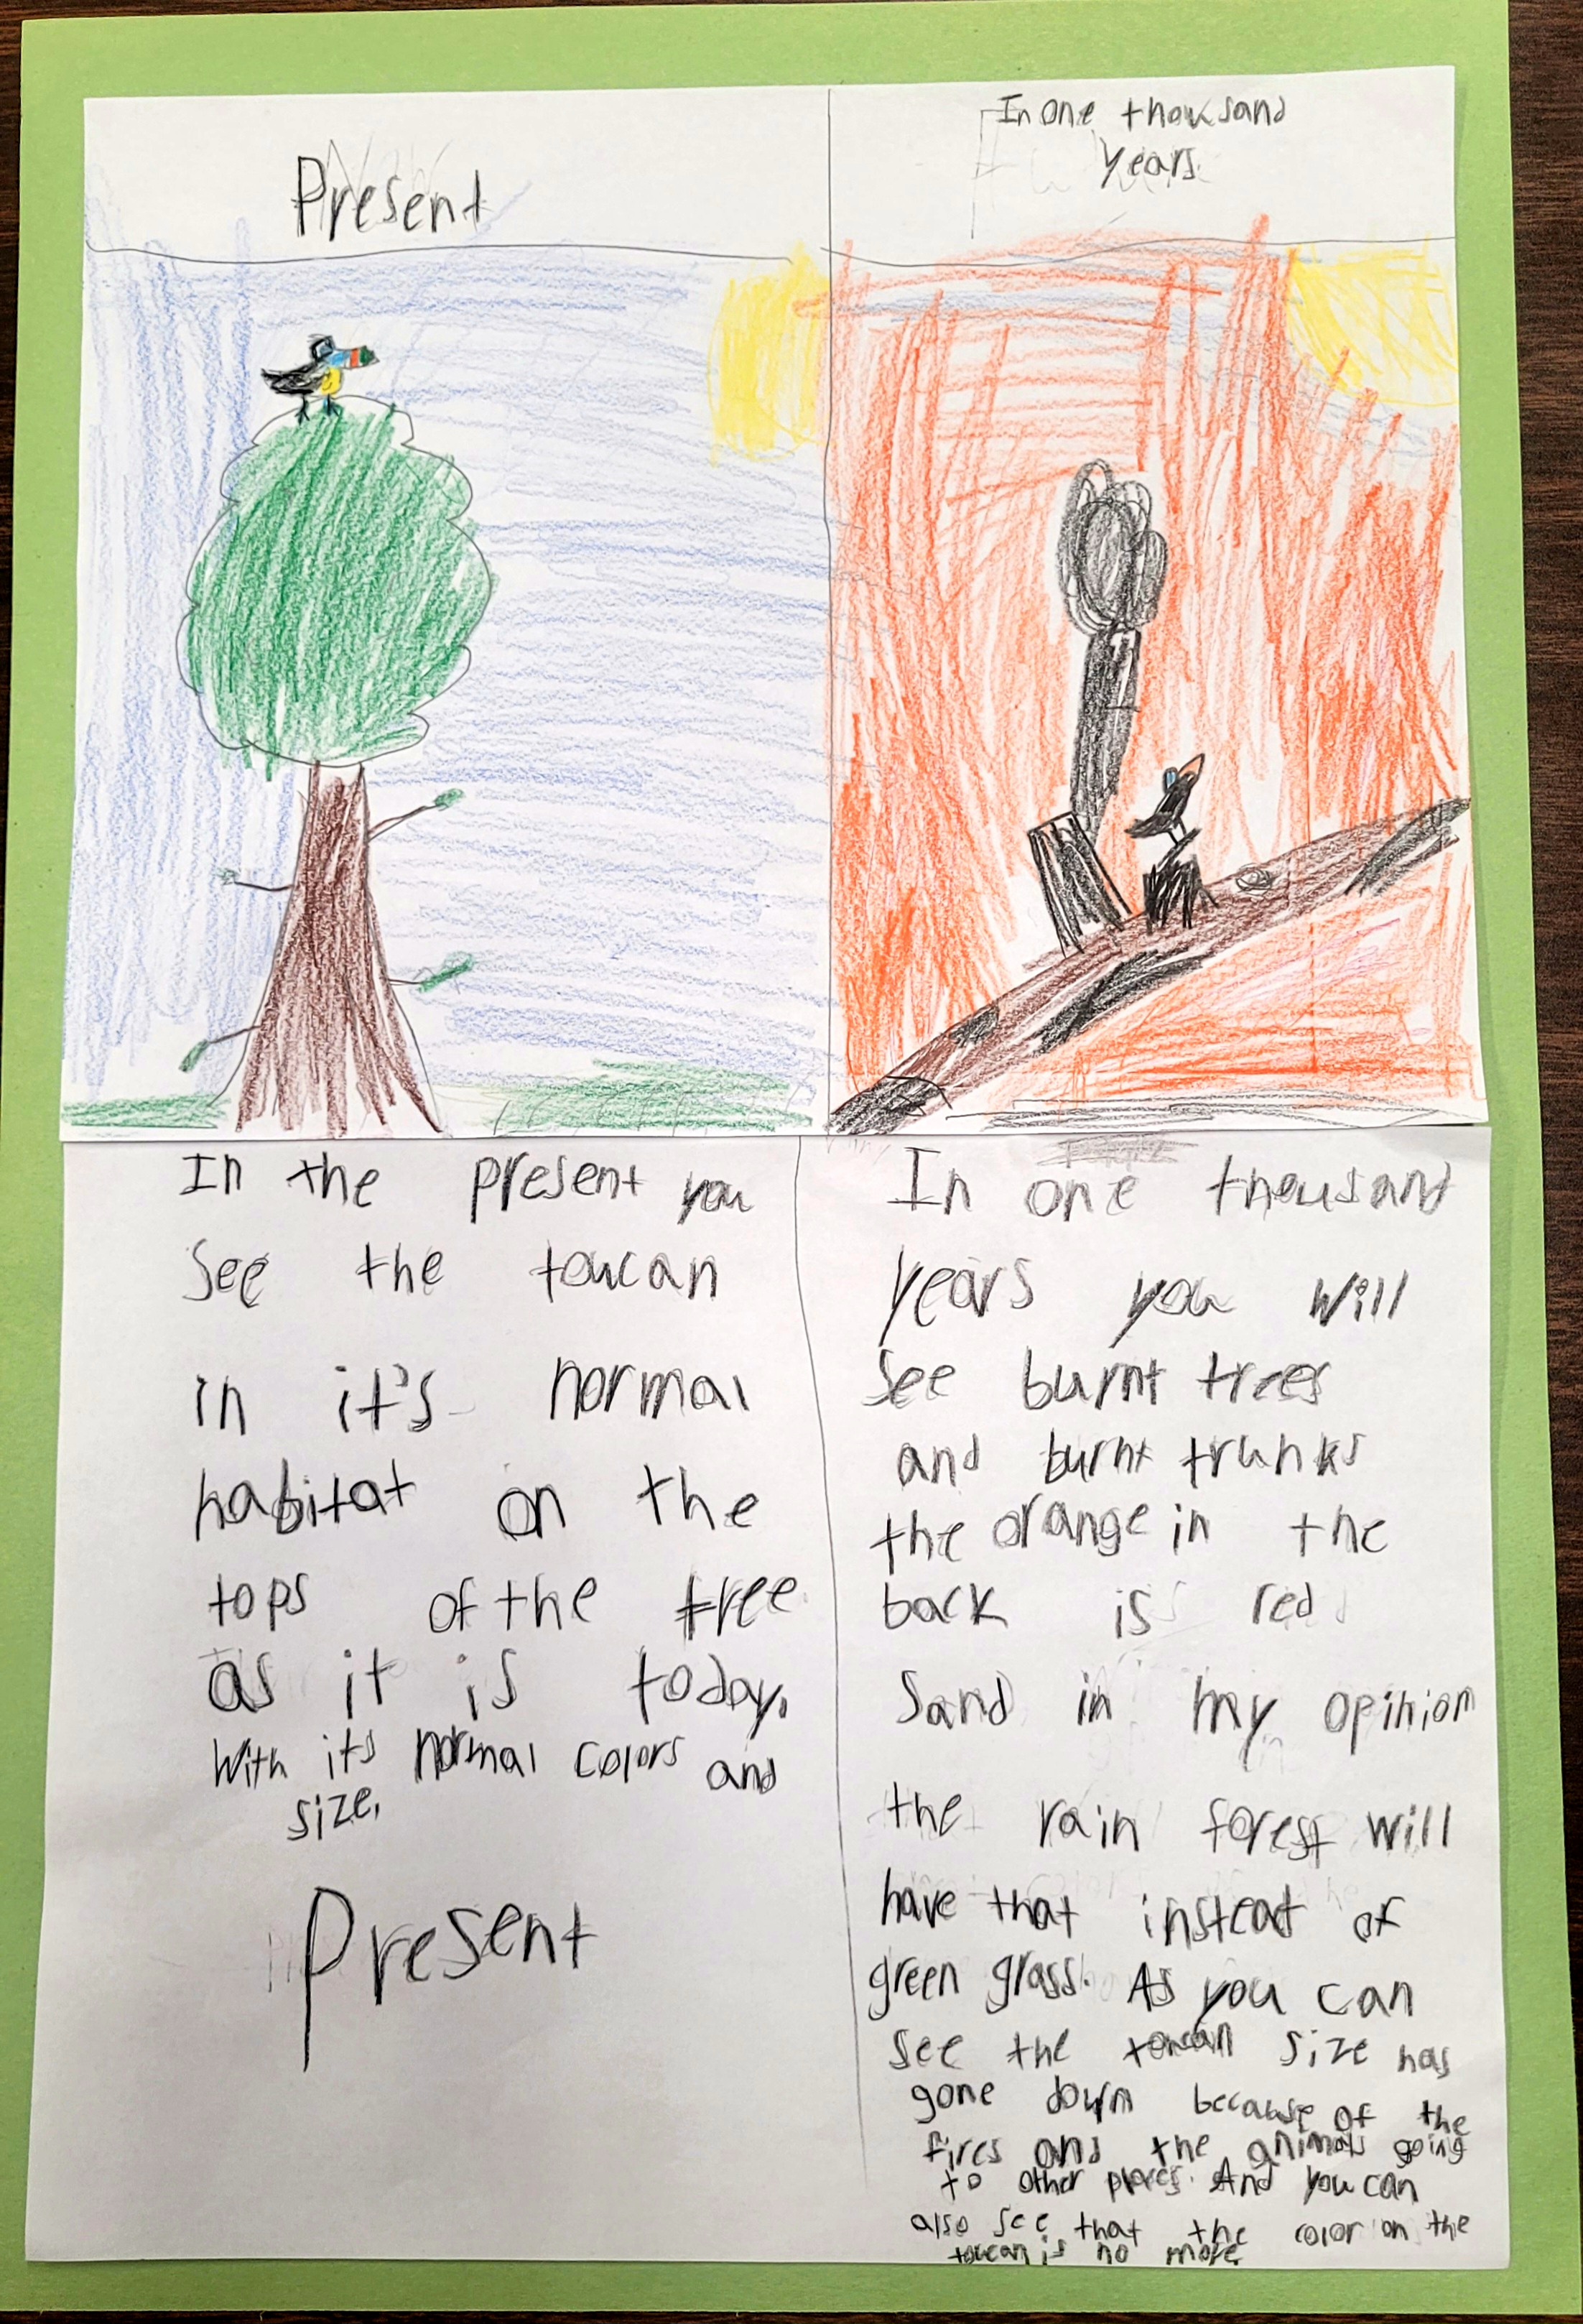 Present
In one thousand
years
In the present you
see the toucan
in it's normal
habitat on the
tops of the tree
as it is today.
With its normal colors and
size.
Present
In one thousand
years you will
see burnt trees
and burnt trunks
the orange in the
back is red
sand in my opinion
the rain forest will
have that instead of
green grass. As you can
see the toucan size has
gone down because of the
fires and the animals going
to other places. And you can
also see that the color on the
toucan is no more